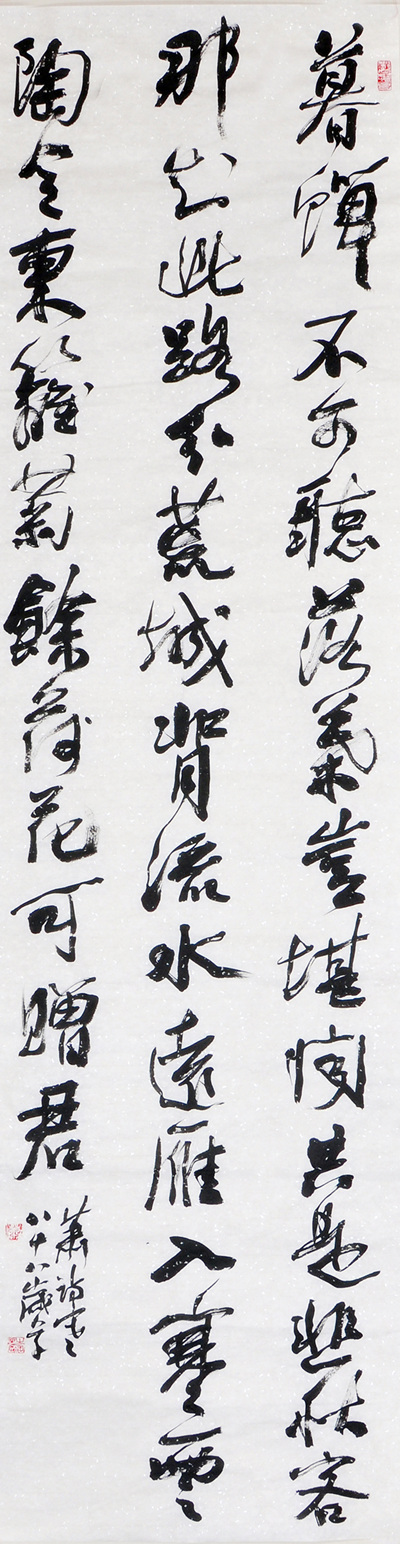 暮蟬不可聽落葉豈堪聞共是悲秋客
那知此路分荒城背流水遠雁入寒雲
陶令東籬菊餘花可贈君
蕭
八十八歲